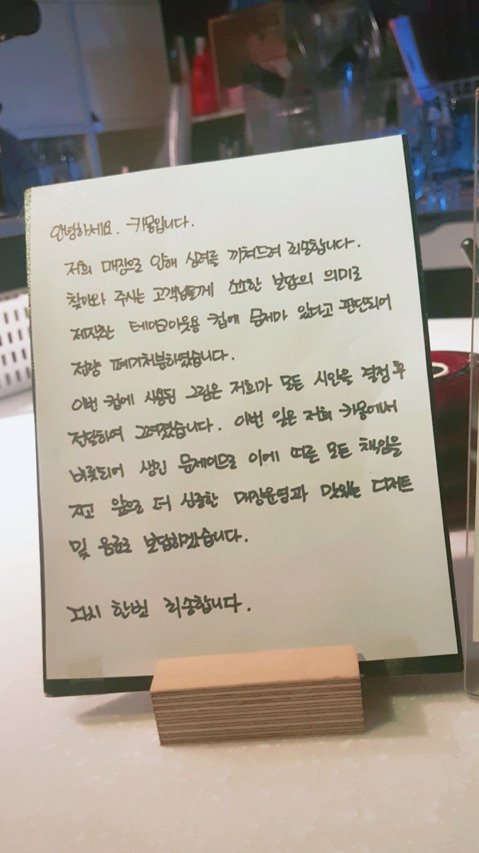 안녕하세요. 키몽입니다.
저희 매장으로 인해 심려를 끼쳐드려 죄송합니다.
찾아와 주시는 고객님들께 소소한 보답의 의미로
제작한 테이크아웃용 컵에 문제가 있다고 판단되어
전량 폐기처분하였습니다.
이번 컵에 사용된 그림은 저희가 모든 시안을 결정 후
전달하여 그려졌습니다. 이번 일은 저희 키몽에서
비롯되어 생긴 문제이므로 이에 따른 모든 책임을
지고 앞으로 더 신중한 매장운영과 맛있는 디저트
및 음료로 보답하겠습니다.
다시 한번 죄송합니다.